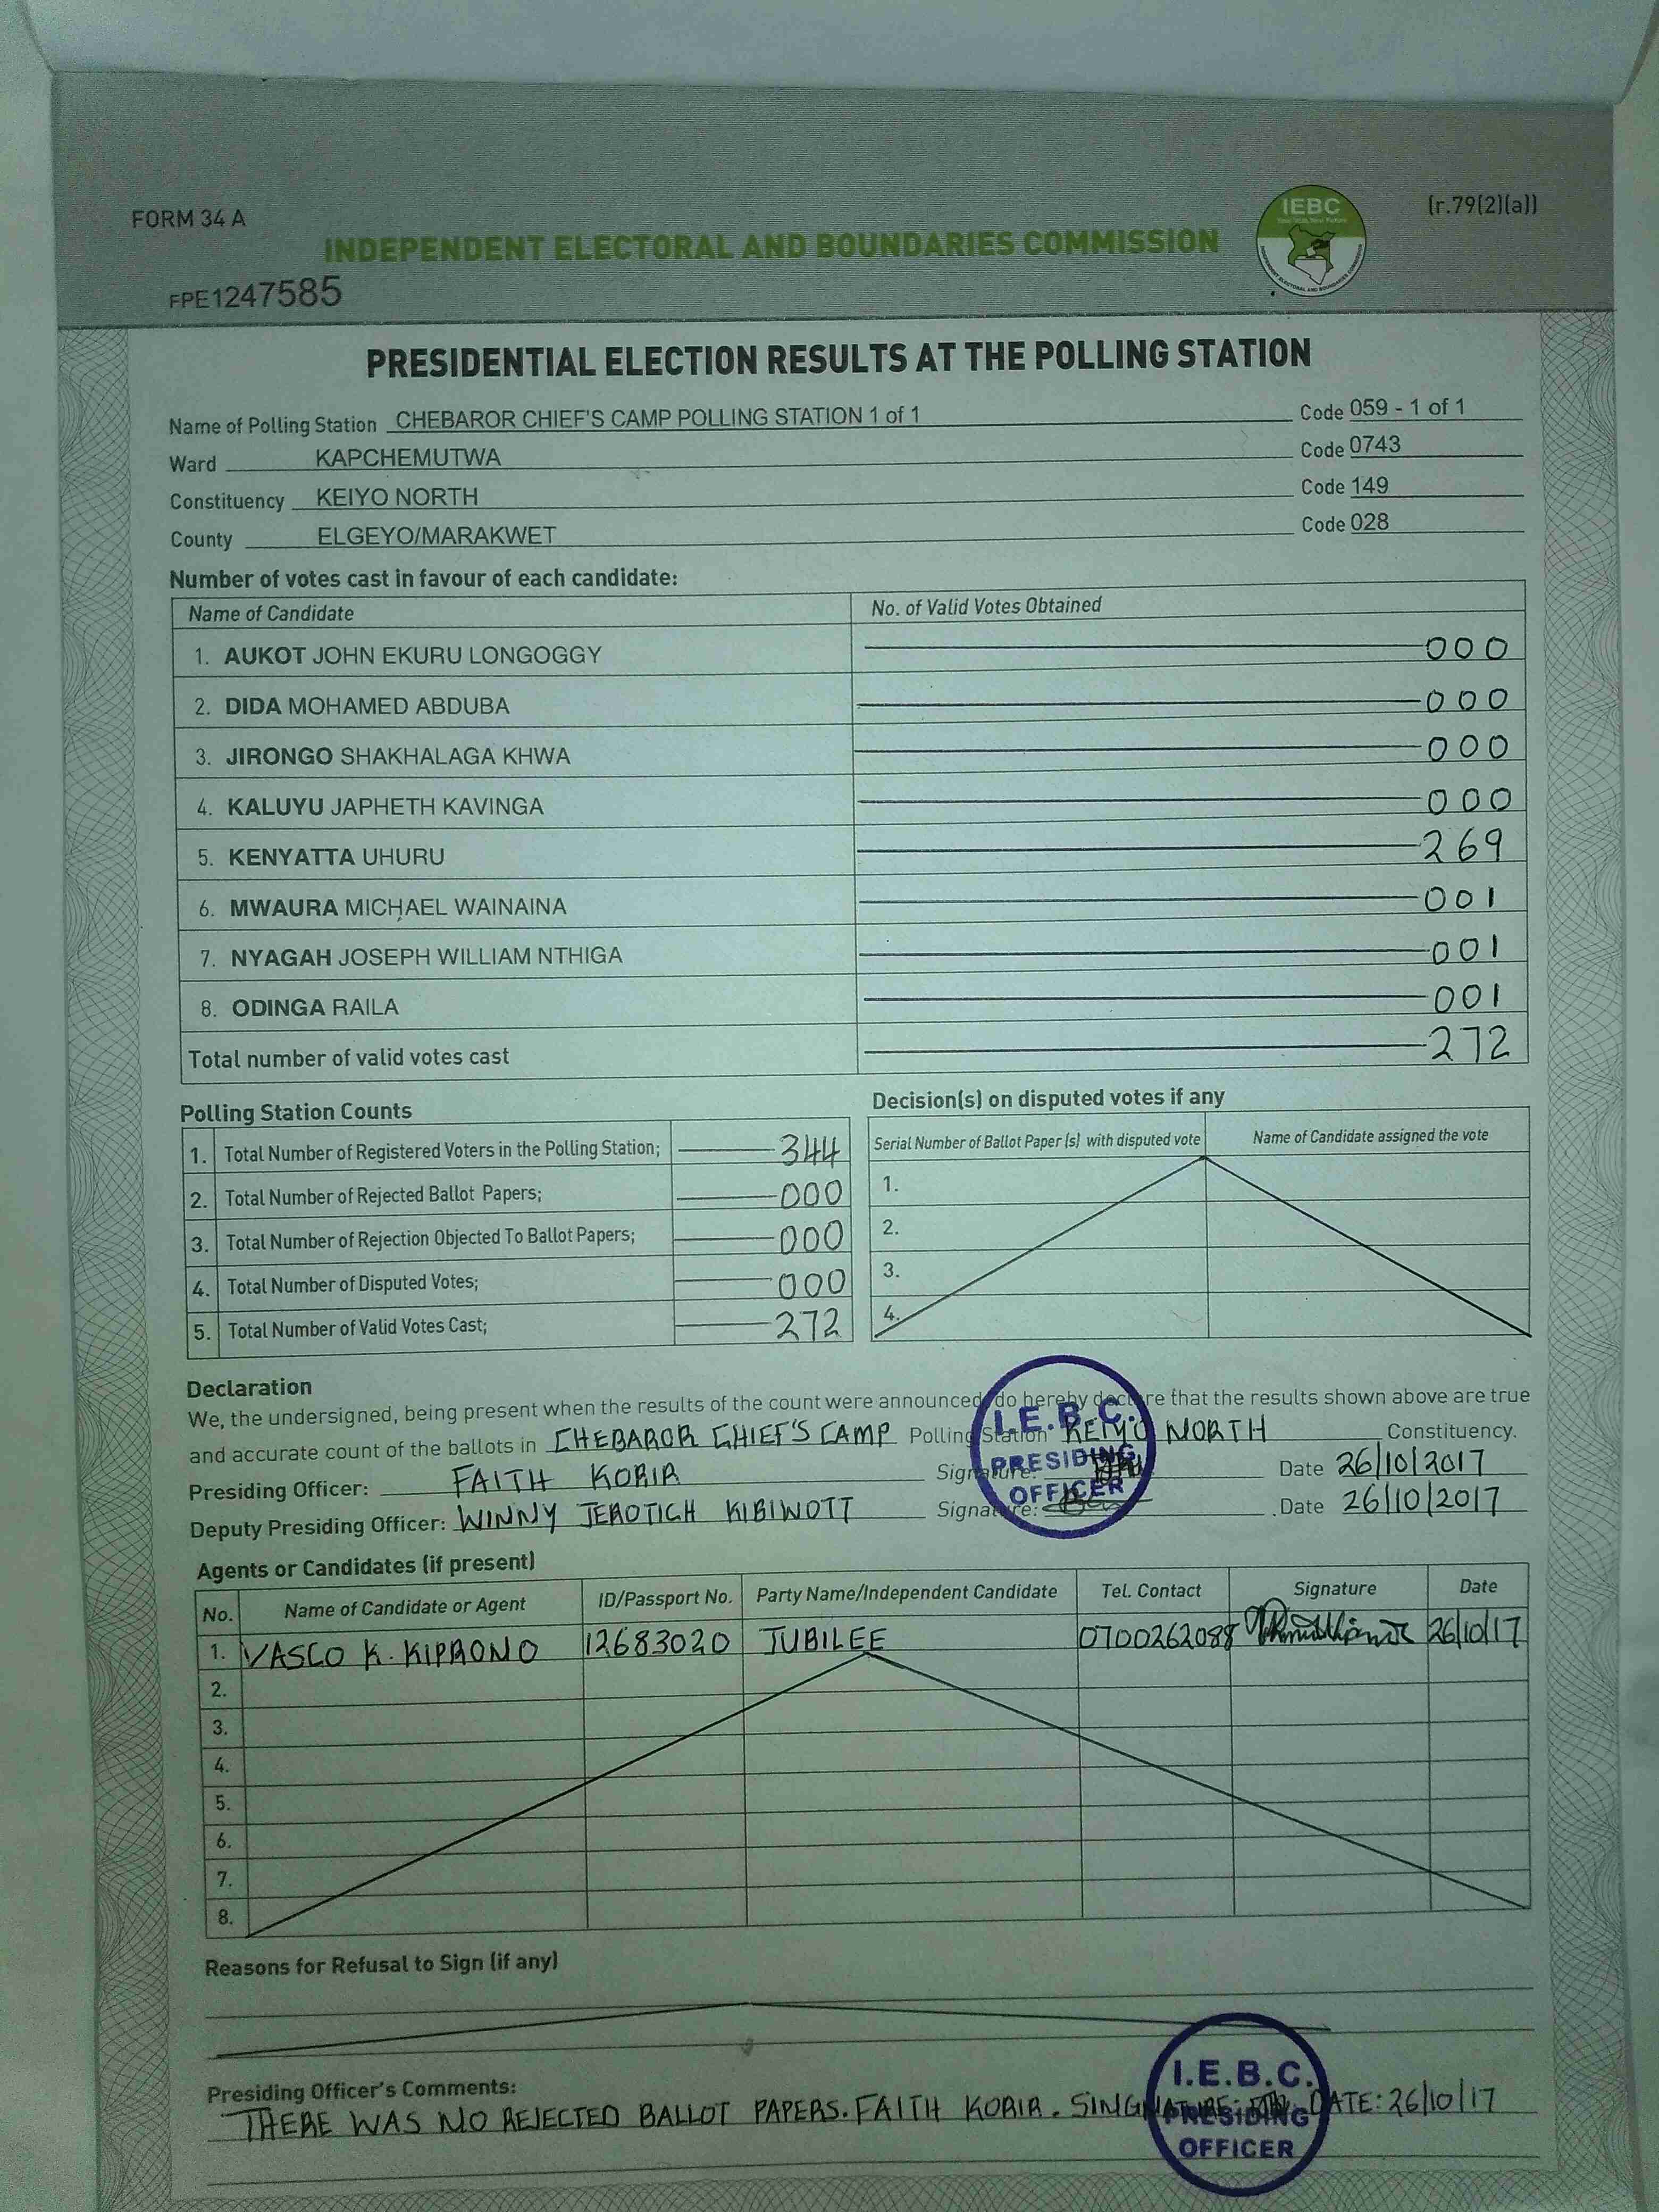 FORM 34 A
INDEPENDENT ELECTORAL AND BOUNDARIES COMMISSION
IEBC
(r.79(2)(a))
FPE1247585
PRESIDENTIAL ELECTION RESULTS AT THE POLLING STATION
Name of Polling Station CHEBAROR CHIEF'S CAMP POLLING STATION 1 of 1 Code 059 - 1 of 1
Ward KAPCHEMUTWA Code 0743
Constituency KEIYO NORTH Code 149
County ELGEYO/MARAKWET Code 028
Number of votes cast in favour of each candidate:
Name of Candidate No. of Valid Votes Obtained
1. AUKOT JOHN EKURU LONGOGGY 000
2. DIDA MOHAMED ABDUBA 000
3. JIRONGO SHAKHALAGA KHWA 000
4. KALUYU JAPHETH KAVINGA 000
5. KENYATTA UHURU 269
6. MWAURA MICHAEL WAINAINA 001
7. NYAGAH JOSEPH WILLIAM NTHIGA 001
8. ODINGA RAILA 001
Total number of valid votes cast 272
Polling Station Counts
1. Total Number of Registered Voters in the Polling Station; 344
2. Total Number of Rejected Ballot Papers; 000
3. Total Number of Rejection Objected To Ballot Papers; 000
4. Total Number of Disputed Votes; 000
5. Total Number of Valid Votes Cast; 272
Decision(s) on disputed votes if any
Serial Number of Ballot Paper (s) with disputed vote Name of Candidate assigned the vote
1.
2.
3.
4.
Declaration
We, the undersigned, being present when the results of the count were announced, do hereby declare that the results shown above are true
and accurate count of the ballots in CHEBAROR CHIEF'S CAMP Polling Station KEIYO NORTH Constituency.
Presiding Officer: FAITH KORIR Signature: Date 26/10/2017
Deputy Presiding Officer: WINNY JEROTICH KIBIWOTT Signature: Date 26/10/2017
I.E.B.C.
PRESIDING
OFFICER
Agents or Candidates (if present)
No. Name of Candidate or Agent ID/Passport No. Party Name/Independent Candidate Tel. Contact Signature Date
1. VASCO K. KIPRONO 12683020 JUBILEE 0700262088 26/10/17
2.
3.
4.
5.
6.
7.
8.
Reasons for Refusal to Sign (if any)
Presiding Officer's Comments:
THERE WAS NO REJECTED BALLOT PAPERS. FAITH KORIR. SINGNATURE: DATE: 26/10/17
I.E.B.C.
PRESIDING
OFFICER